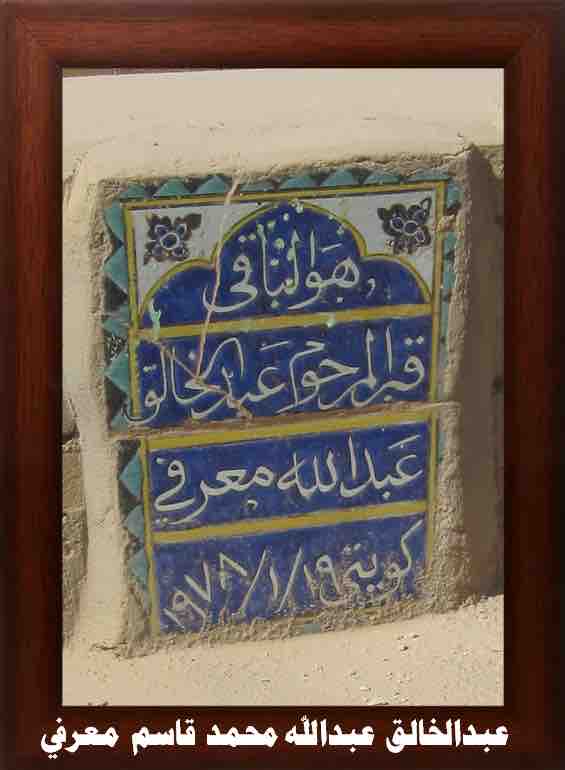 هو الباقي
قبر المرحوم عبد الخالق
عبد الله معرفي
كويتي ١٩/١/١٩٧٨
عبدالخالق عبدالله محمد قاسم معرفي